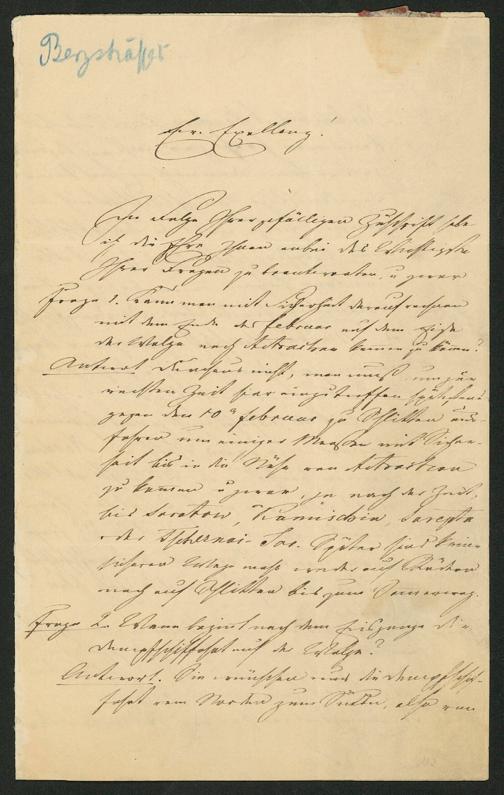 Bergsträßer
Ew. Exellenz!
In Folge Ihrer gefälligen Zuschrift habe
ich die Ehre Ihnen anbei das
Ihrer Fragen zu beantworten, u zwar
Frage 1. Kann man mit Sicherheit darauf rechnen
mit dem Ende des Februar auf dem Eise
der Wolga nach Astrachan kommen zu können?
Antwort Durchaus nicht, man muß um zur
rechten Zeit hier einzutreffen spätestens
gegen den 10n Februar zu Schlitten aus-
fahren um einiger Maassen mit Sicher-
heit bis in die Nähe von Astrachan
zu kommen u zwar, je nach der Zeit,
bis Saratow, Kamischin, Sarepta
oder Tschernoi-Jar. Später sind keine
sicheren Wege mehr weder auf Rädern
noch auf Schlitten bis zum Sommerweg.
Frage 2. Wann beginnt nach dem Eisgange die
Dampfschiffahrt auf der Wolga?
Antwort. Sie wünschen nur die Dampfschif-
fahrt vom Norden zum Süden, also von